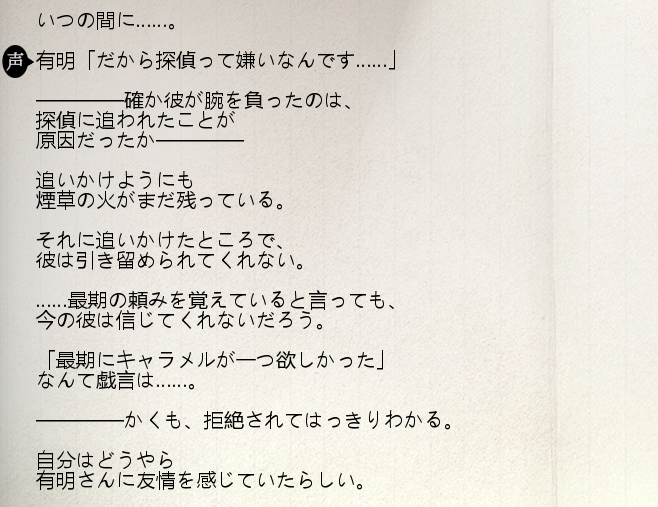 いつの間に……。
声
有明「だから探偵って嫌いなんです……」
――――確か彼が腕を負ったのは、
探偵に追われたことが
原因だったか――――
追いかけようにも
煙草の火がまだ残っている。
それに追いかけたところで、
彼は引き留められてくれない。
……最期の頼みを覚えていると言っても、
今の彼は信じてくれないだろう。
「最期にキャラメルが一つ欲しかった」
なんて戯言は……。
――――かくも、拒絶されてはっきりわかる。
自分はどうやら
有明さんに友情を感じていたらしい。